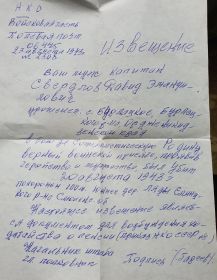 НКО
Войсковая часть
Полевая почт
23 августа 1943г
№ 2303
Извещение
Ваш муж капитан
Свердлов Давид Эмануи-
лович
уроженец с. Бурлацкое, Бурлац-
кого р-на Орджоникид-
зевский край
в бою за социалистическую Родину
верный воинской присяге, проявив
геройство и мужество был убит
20 августа 1943 г
похоронен 100 м. южнее дер.
р-на Смоленс об
Настоящее извещение являет-
ся документом для возбуждения хо-
датайства о пенсии (приказ НКО СССР №
Начальник штаба
Подпись